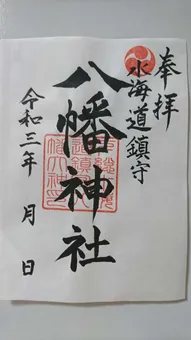 奉拝
水海道鎮守
八幡神社
令和三年 月 日